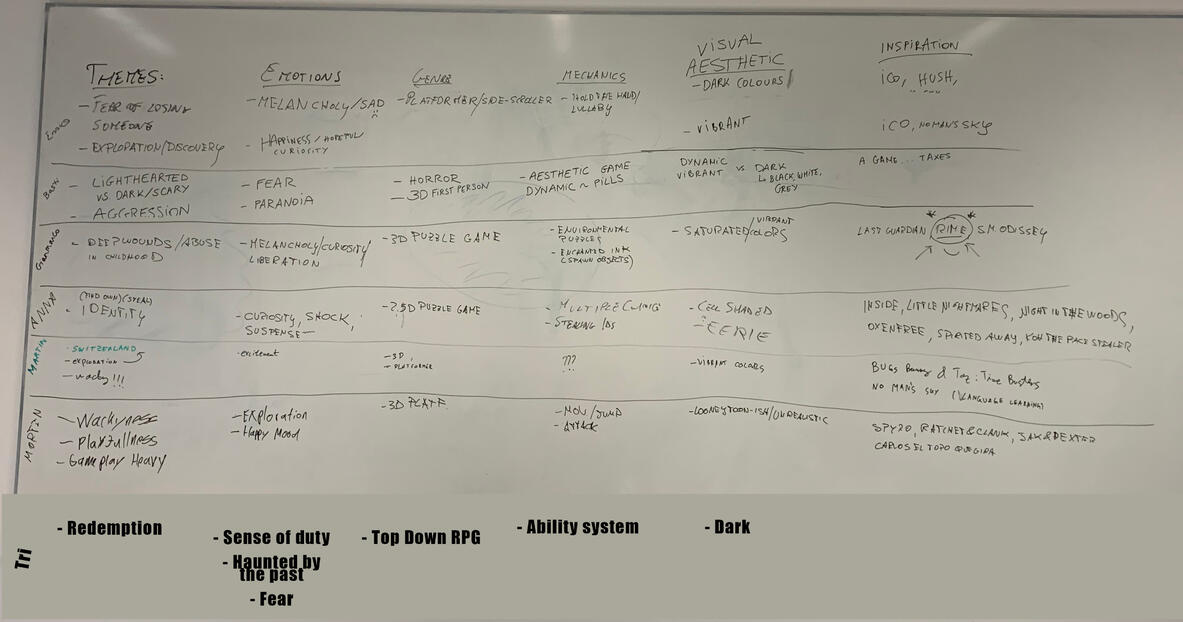 THEMES:
EMOTIONS
GENRE
MECHANICS
VISUAL
AESTHETIC
INSPIRATION
- FEAR OF LOSING
SOMEONE
- EXPLORATION/DISCOVERY
- MELANCHOLY/SAD
HAPPINESS / HOPEFUL
CURIOCITY
- PLATFORMER/SIDE-SCROLLER
- HOLD THE HAND/
LULLABY
- DARK COLOURS
- VIBRANT
ICO, HUSH,
ICO, NOMANSSKY
- LIGHTHEARTED
VS DARK/SCARY
- AGGRESSION
- FEAR
- PARANOIA
- HORROR
- 3D FIRST PERSON
- AESTHETIC GAME
DYNAMIC ~ PILLS
DYNAMIC
VIBRANT VS DARK
BLACK, WHITE,
GREY
A GAME... TAXES
Gianmarco
- DEEP WOUNDS / ABUSE
IN CHILDHOOD
- MELANCHOLY/CURIOSITY/
LIBERATION
- 3D PUZZLE GAME
- ENVIRONMENTAL
PUZZLES
- ENCHANTED INK
(SPAWN OBJECTS)
- SATURATED/VIBRANT COLORS
LAST GUARDIAN RIME SM.ODISSEY
ANNA
(FIND OWN) (STEAL)
- IDENTITY
- CURIOSITY, SHOCK,
SUSPENSE
- 2.5D PUZZLE GAME
- STEALING IDS
- CELL SHADED
- EERIE
INSIDE, LITTLE NIGHTMARES, NIGHT IN THE WOODS,
OXENFREE, SPIRITED AWAY, KOH THE FACE STEALER
MARTIN
- SWITZERLAND
- EXPLORATION
- wacky!!!
- excitement
- 3D
- PLATFORMER
???
- VIBRANT COLORS
BUGS Bunny & Taz: Time Busters
NO MAN'S SKY (LANGUAGE LEARNING)
MORTEN
- Wackyness
- Playfullness
- Gameplay Heavy
- Exploration
- Happy Mood
- 3D PLATF.
- MOV/JUMP
- ATTACK
- LOONEYTOON-ISH/UNREALISTIC
SPYRO, RATCHET & CLANK, JAK & DEXTER
CARLOS EL TOPO
Tri
- Redemption
- Sense of duty
- Haunted by
the past
- Fear
- Top Down RPG
- Ability system
- Dark